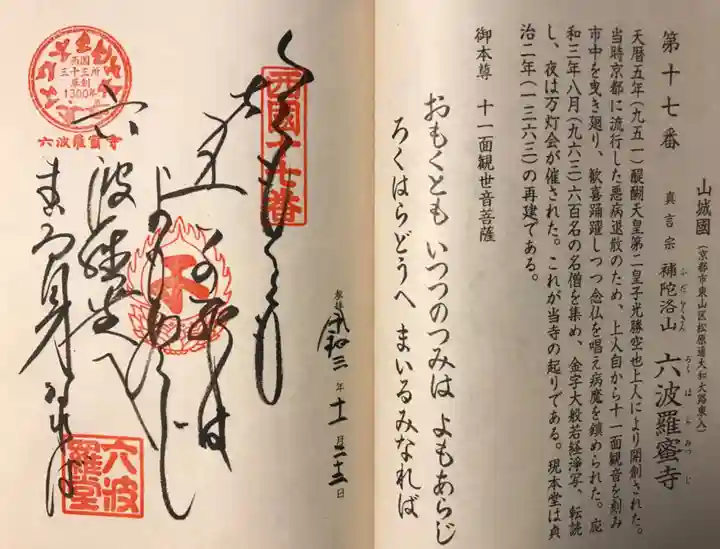 第十七番
山城國(京都市東山区松原通大和大路東入)
真言宗 補陀洛山 六波羅蜜寺
ふだらくさん ろくはらみつじ
天暦五年(九五一)醍醐天皇第二皇子光勝空也上人により開創された。
当時京都に流行した悪病退散のため、上人自から十一面観音を刻み
市中を曳き廻り、歓喜踊躍しつつ念仏を唱え病魔を鎮められた。応
和三年八月(九六三)六百名の名僧を集め、金字大般若経浄写、転読
し、夜は万灯会が催された。これが当寺の起りである。現本堂は貞
治二年(一三六三)の再建である。
御本尊 十一面観世音菩薩
おもくとも いつつのつみは よもあらじ
ろくはらどうへ まいるみなれば
奉拝 令和三年十一月二十三日
西國十七番
おもくとも
五つの罪は
よもあらじ
六波羅堂へ
まいる身なれば
西国
三十三所
草創
1300年
六波羅蜜寺
六波
羅堂